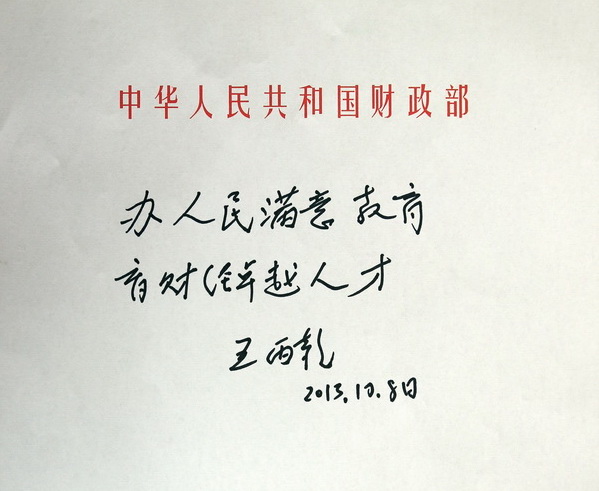 中华人民共和国财政部
办人民满意教育
育财经卓越人才
王丙乾
2013.10.8日